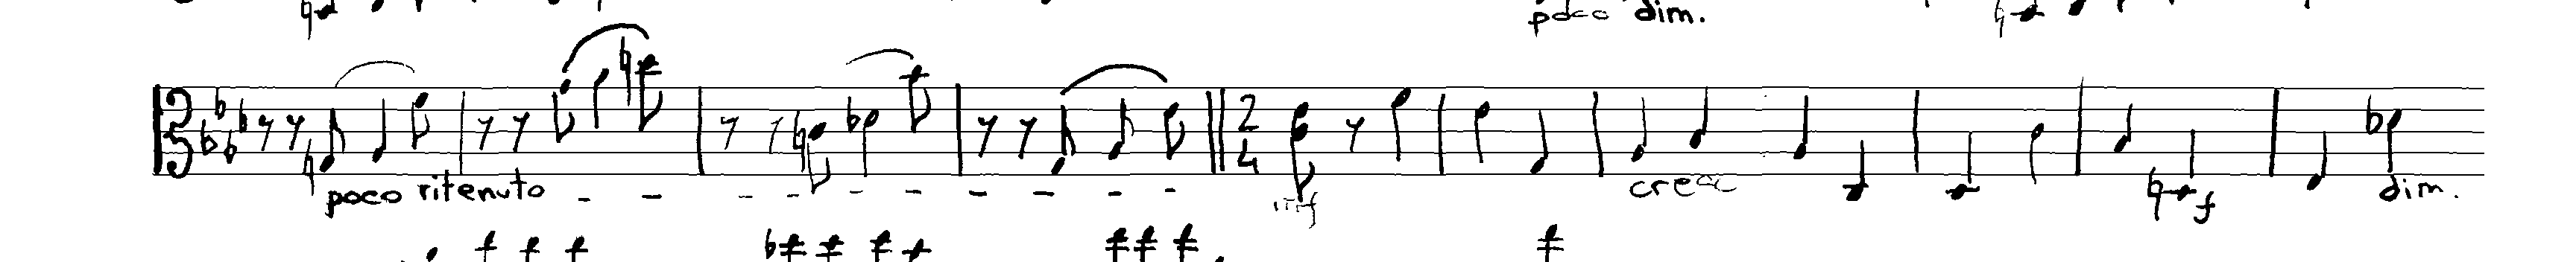 poco dim.
2
4
poco ritenuto
mf
cresc
f
dim.